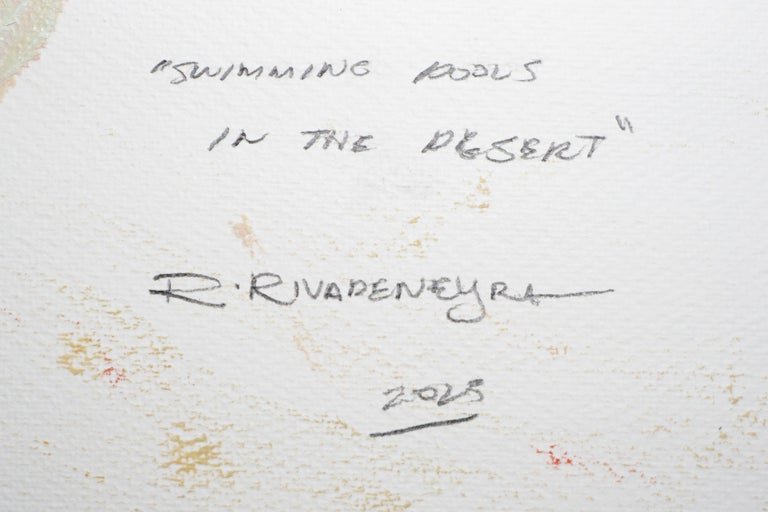 "SWIMMING POOLS
IN THE DESERT"
R. RIVADENEYRA
2023